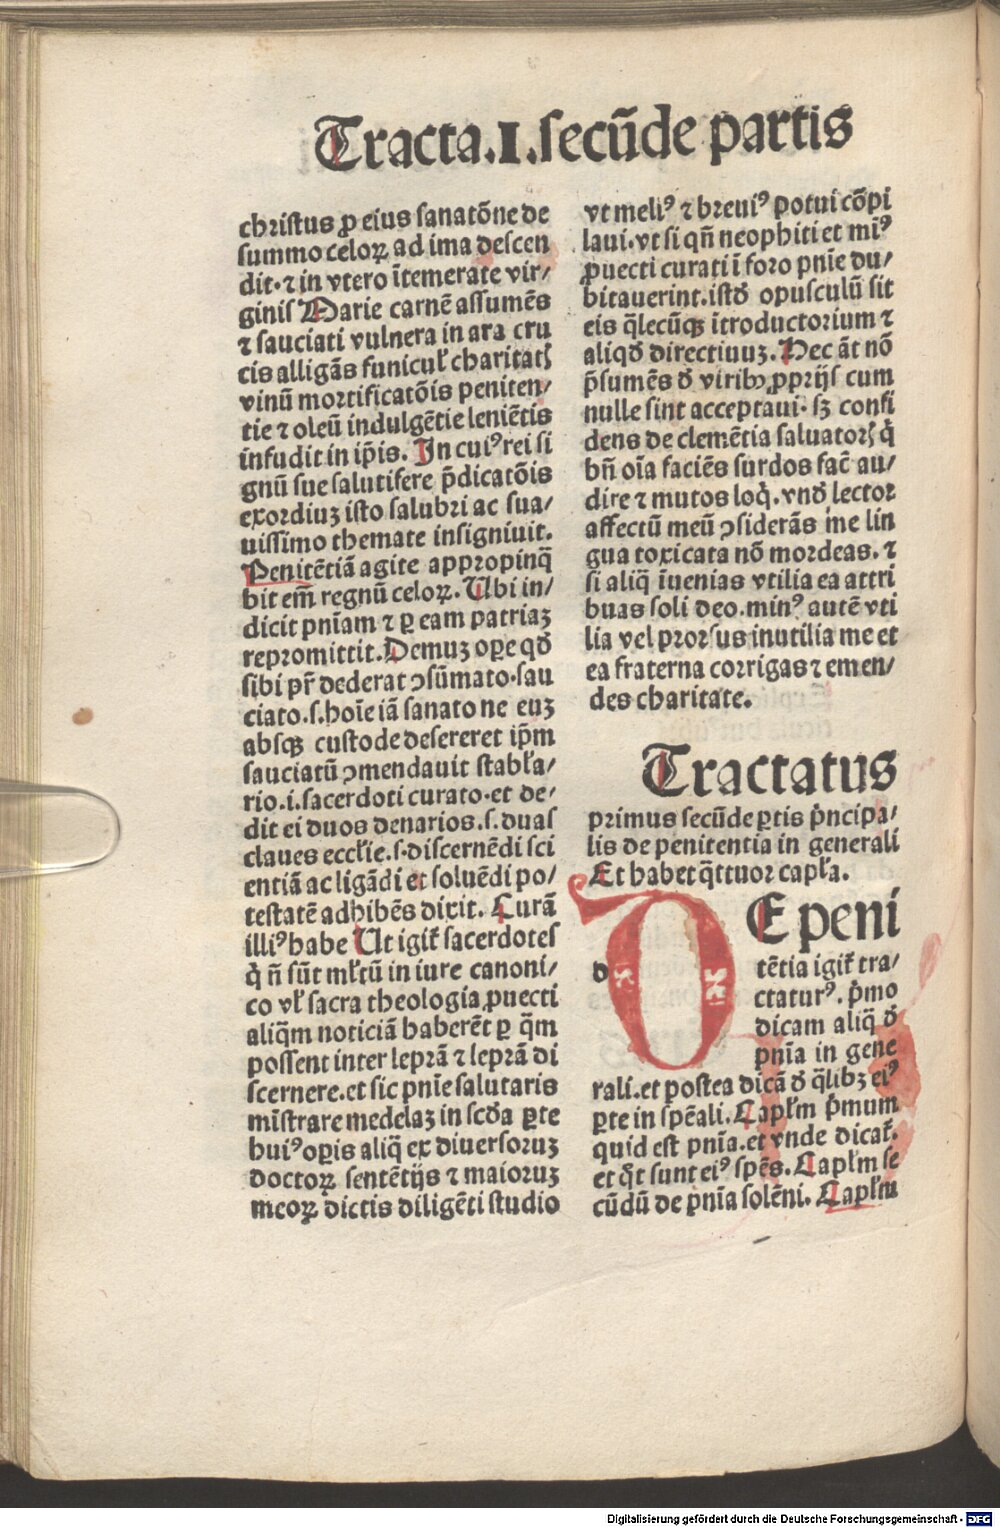 Tracta.I.secūde partis
christus ꝓ eius sanatōne de
summo celoꝝ ad ima descen
dit. ⁊ in vtero ītemerate vir/
ginis Marie carnē assumēs
⁊ sauciati vulnera in ara cru
cis alligās funicul̕ charitatꝭ
vinū mortificatōis peniten/
tie ⁊ oleū indulgētie leniētis
infudit in ip̄is. In cuiꝰ rei si
gnū sue salutifere p̄dicatōis
exordiuꝫ isto salubri ac sua/
uissimo themate insigniuit.
Penitētiā agite appropinq̄
bit em̄ regnū celoꝝ. Ubi in/
dicit pn̄iam ⁊ ꝑ eam patriaꝫ
repromittit. Demuꝫ oꝑe qd̕
sibi pr̄ dederat ꝯsūmato. sau
ciato. s. hoīe iā sanato ne euꝫ
absqꝫ custode desereret ip̄m
sauciatū ꝯmendauit stabl̕a/
rio. i. sacerdoti curato. et de/
dit ei duos denarios. s. duas
claues eccl̕ie. s. discernēdi sci
entiā ac ligādi et soluēdi po/
testatē adhibēs dixit. Curā
illiꝰ habe Ut igit̕ sacerdotes
q̇ n̄ sūt ml̕tū in iure canoni/
co vl̕ sacra theologia ꝓuecti
aliq̄m noticiā haberēt ꝑ q̄m
possent inter leprā ⁊ leprā di
scernere. et sic pn̄ie salutaris
mīstrare medelaꝫ in scd̕a ꝑte
huiꝰ oꝑis aliq̄ ex diuersoruꝫ
doctoꝝ sentētijs ⁊ maioruꝫ
meoꝝ dictis diligēti studio
vt meliꝰ ⁊ breuiꝰ potui cōpi
laui. vt si qn̄ neophiti et miꝰ
ꝓuecti curati ī foro pn̄ie du/
bitauerint. istd̕ opusculū sit
eis q̄lecūqꝫ ītroductorium ⁊
aliqd̕ directiuuꝫ. Hec āt nō
p̄sumēs d̕ viribꝰ ꝓprijs cum
nulle sint acceptaui. sꝫ confi
dens de clemētia saluatorꝭ q̇
bn̄ oīa faciēs surdos fac̄ au/
dire ⁊ mutos loq̇. vnd̕ lector
affectū meū ꝯsiderās me lin
gua toxicata nō mordeas. ⁊
si aliq̄ īuenias vtilia ea attri
buas soli deo. minꝰ autē vti
lia vel prorsus inutilia me et
ea fraterna corrigas ⁊ emen/
des charitate.
Tractatus
primus secūde ꝑtis ṗncipa/
lis de penitentia in generali
Et habet q̄ttuor capl̕a.
d
DE peni
tētia igit̕ tra/
ctaturꝰ. ṗmo
dicam aliq̄ d̕
pn̄ia in gene
rali. et postea dicā d̕ q̄libꝫ eiꝰ
ꝑte in spēali. Capl̕m ṗmum
quid est pn̄ia. et vnde dicat̕.
et q̇t sunt eiꝰ spēs. Capl̕m se
cūdū de pn̄ia solēni. Capl̕m
Digitalisierung gefördert durch die Deutsche Forschungsgemeinschaft - DFG